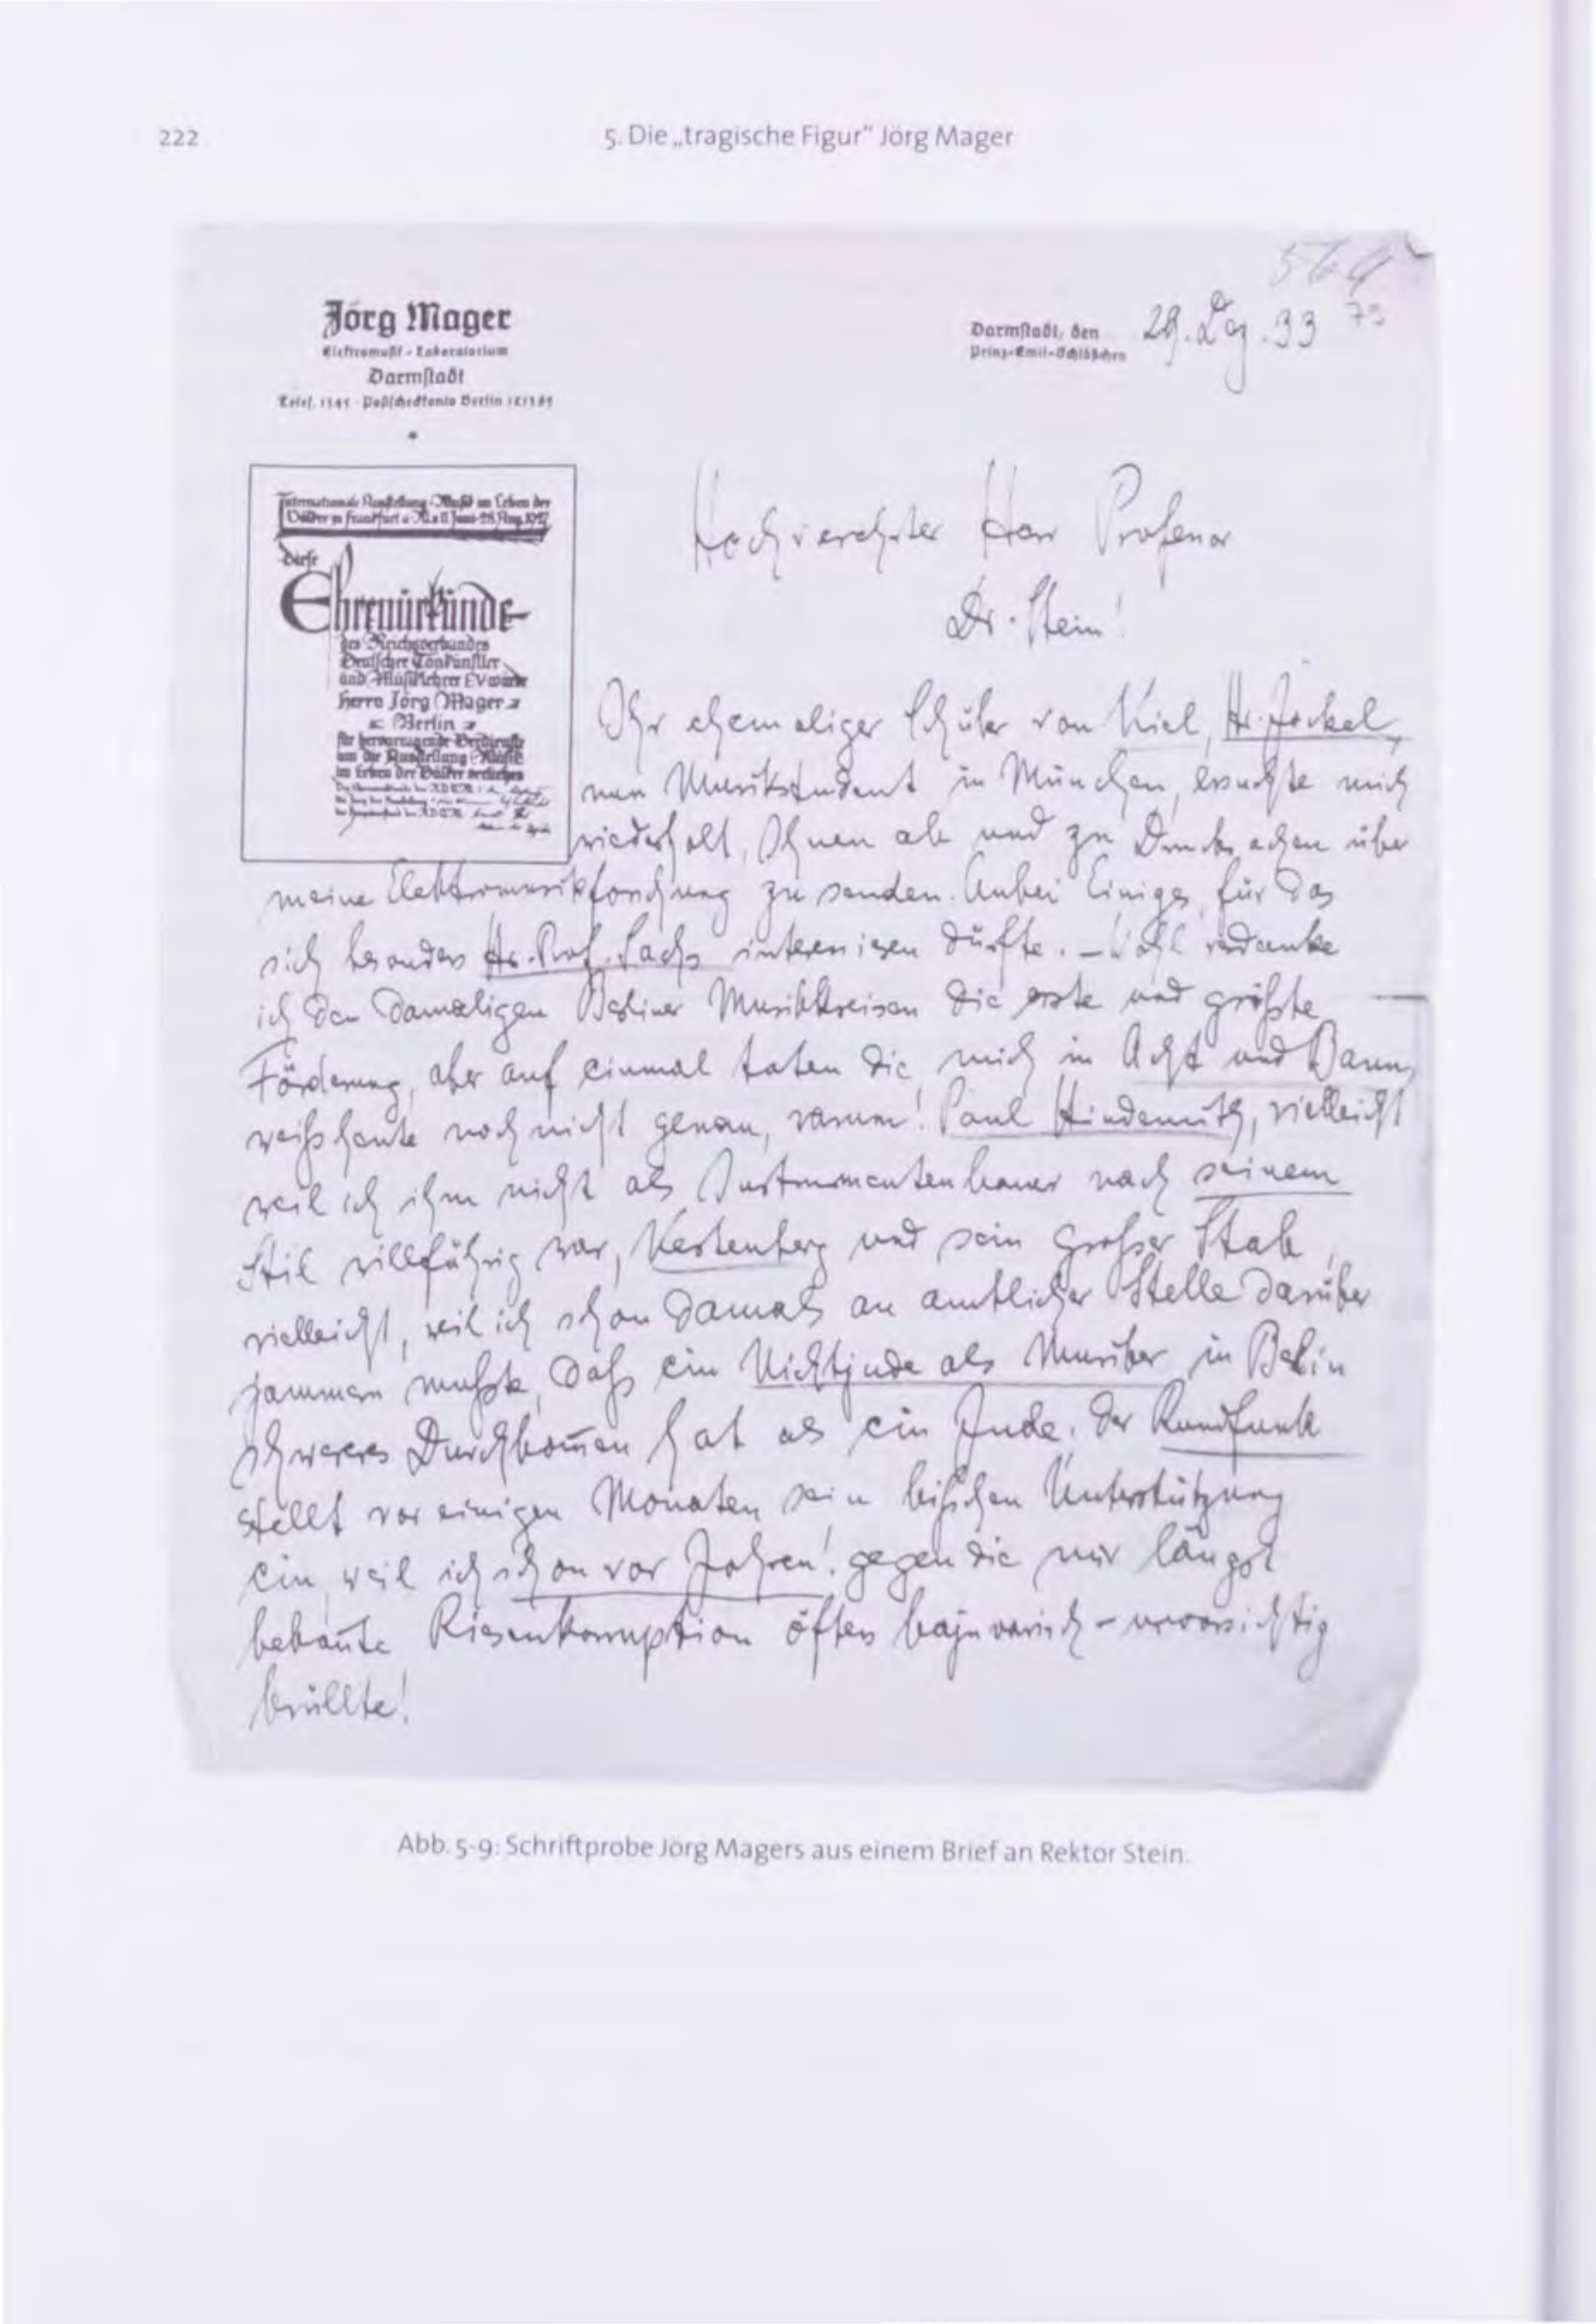 222
5. Die „tragische Figur“ Jörg Mager
564
75
Jörg Mager
Elektromusik-Laboratorium
Darmstadt
Postscheckkonto Berlin
Darmstadt, den 29. Dez. 33
Prinz-Emil-Schlößchen
Internationale Ausstellung Musik im Leben der
Völker zu Frankfurt a. M.
Diese
Ehrenurkunde
des Reichsverbandes
Deutscher Tonkünstler
und Musiklehrer E V wurde
Herrn Jörg Mager
Berlin
für hervorragende Verdienste
um die Ausstellung Musik
im Leben der Völker verliehen
Hochverehrter Herr Professor
Dr. Stein!
Ihr ehemaliger Schüler von Kiel, Hr. Jöckel,
nun Musikstudent in München, ersuchte mich
wiederholt, Ihnen ab und zu Drucksachen über
meine Elektromusikforschung zu senden. Anbei Einiges, für das
sich besonders Hr. Prof. Sachs interessieren dürfte. – Wohl verdanke
ich den damaligen Berliner Musikkreisen die erste und größte
Förderung, aber auf einmal taten die mich in Acht und Bann,
weiß heute noch nicht genau, warum! Paul Hindemith, vielleicht
weil ich ihm nicht als Instrumentenbauer nach seinem
Stil willfährig war, Kestenberg und sein großer Stab,
vielleicht, weil ich schon damals an amtlicher Stelle darüber
jammern mußte, daß ein Nichtjude als Musiker in Berlin
schwereres Durchkom̄en hat als ein Jude. Der Rundfunk
stellt vor einigen Monaten sein bißchen Unterstützung
ein, weil ich schon vor Jahren! gegen die mir längst
bekan̄te Riesenkorruption öfters bajuvarisch-unvorsichtig
brüllte!
Abb. 5-9: Schriftprobe Jörg Magers aus einem Brief an Rektor Stein.